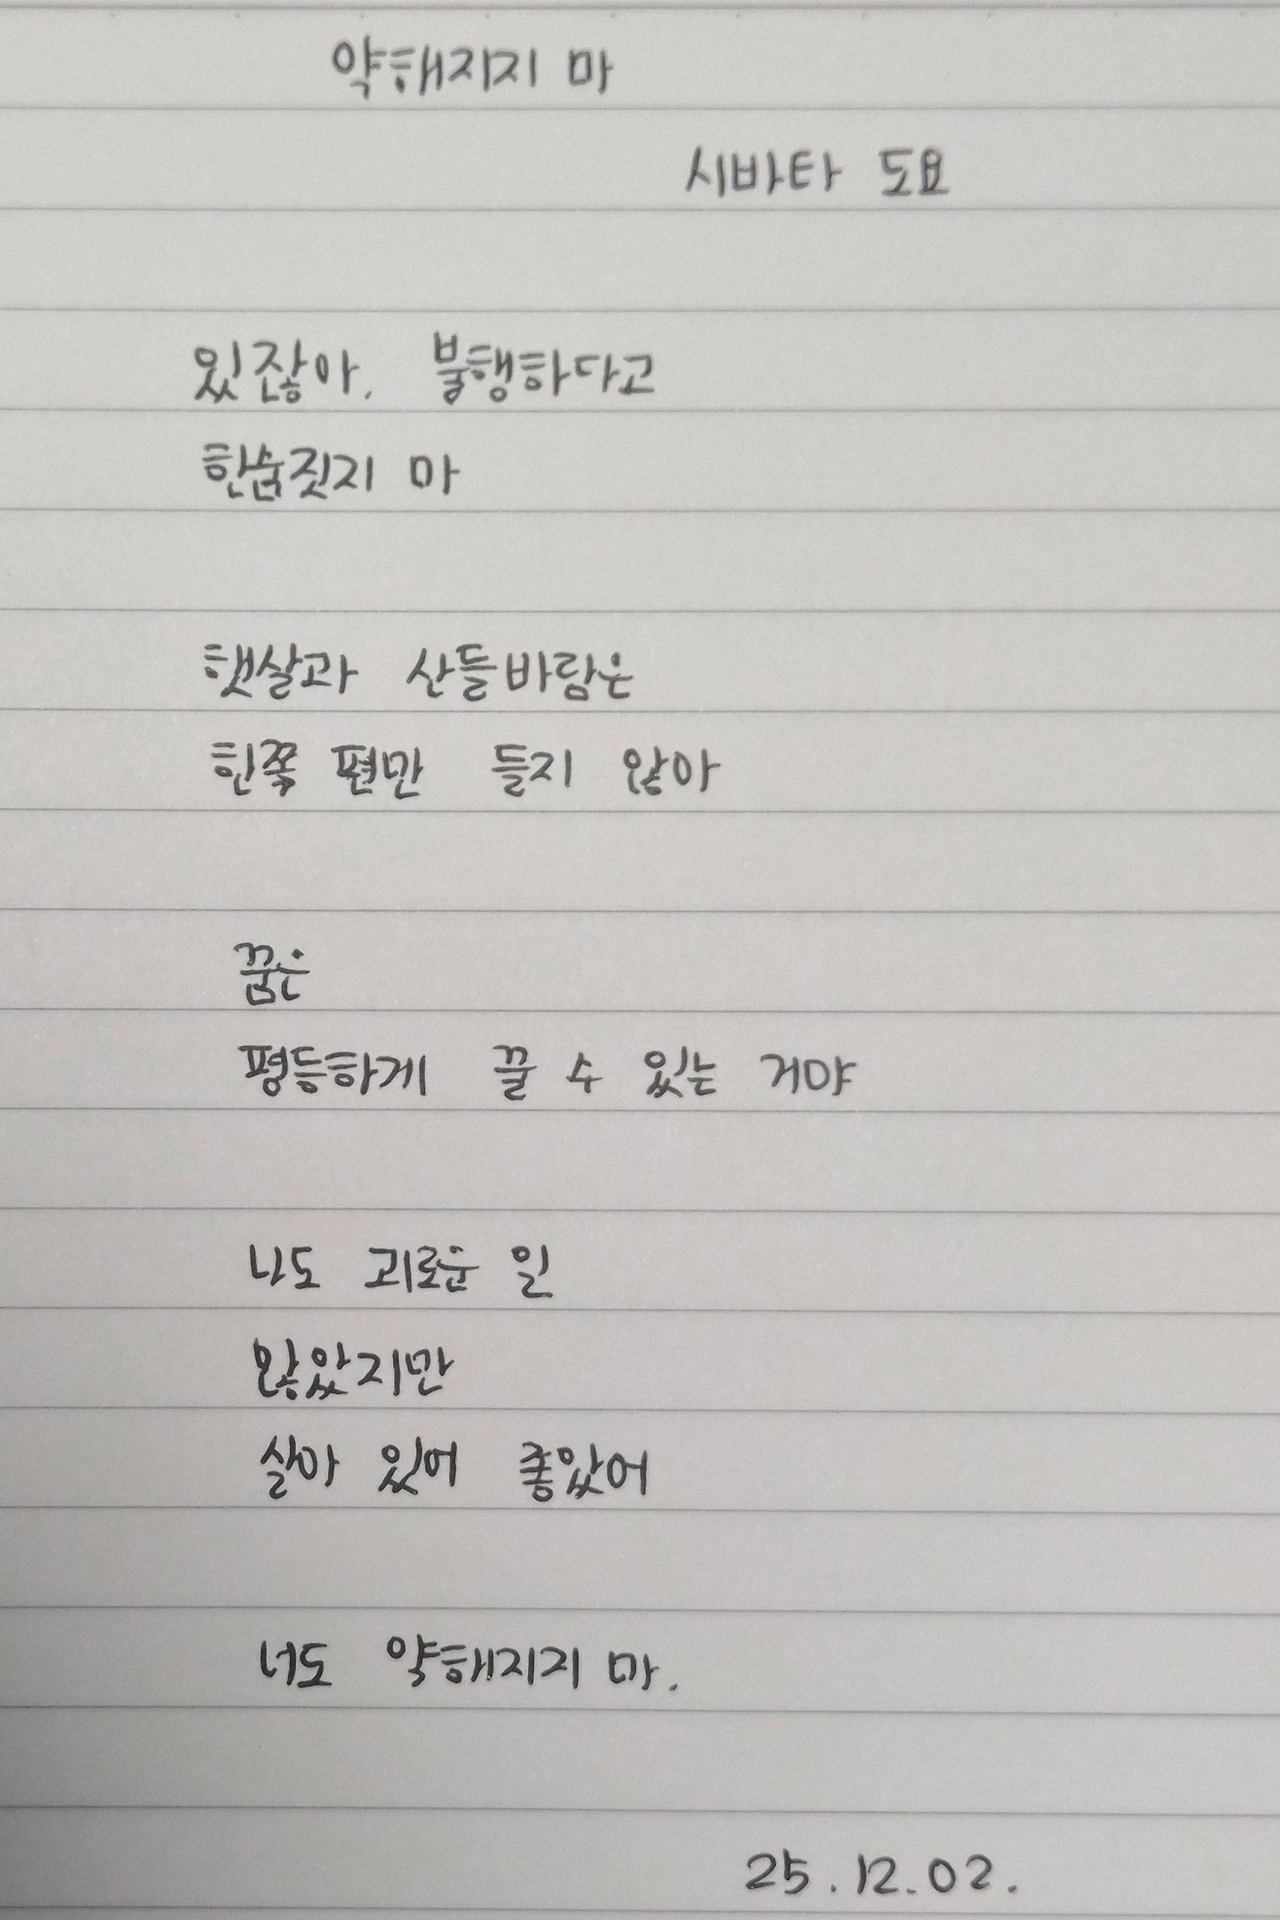 약해지지 마
시바타 도요
있잖아. 불행하다고
한숨짓지 마
햇살과 산들바람은
한쪽 편만 들지 않아
꿈은
평등하게 꿀 수 있는 거야
나도 괴로운 일
많았지만
살아 있어 좋았어
너도 약해지지 마.
25.12.02.